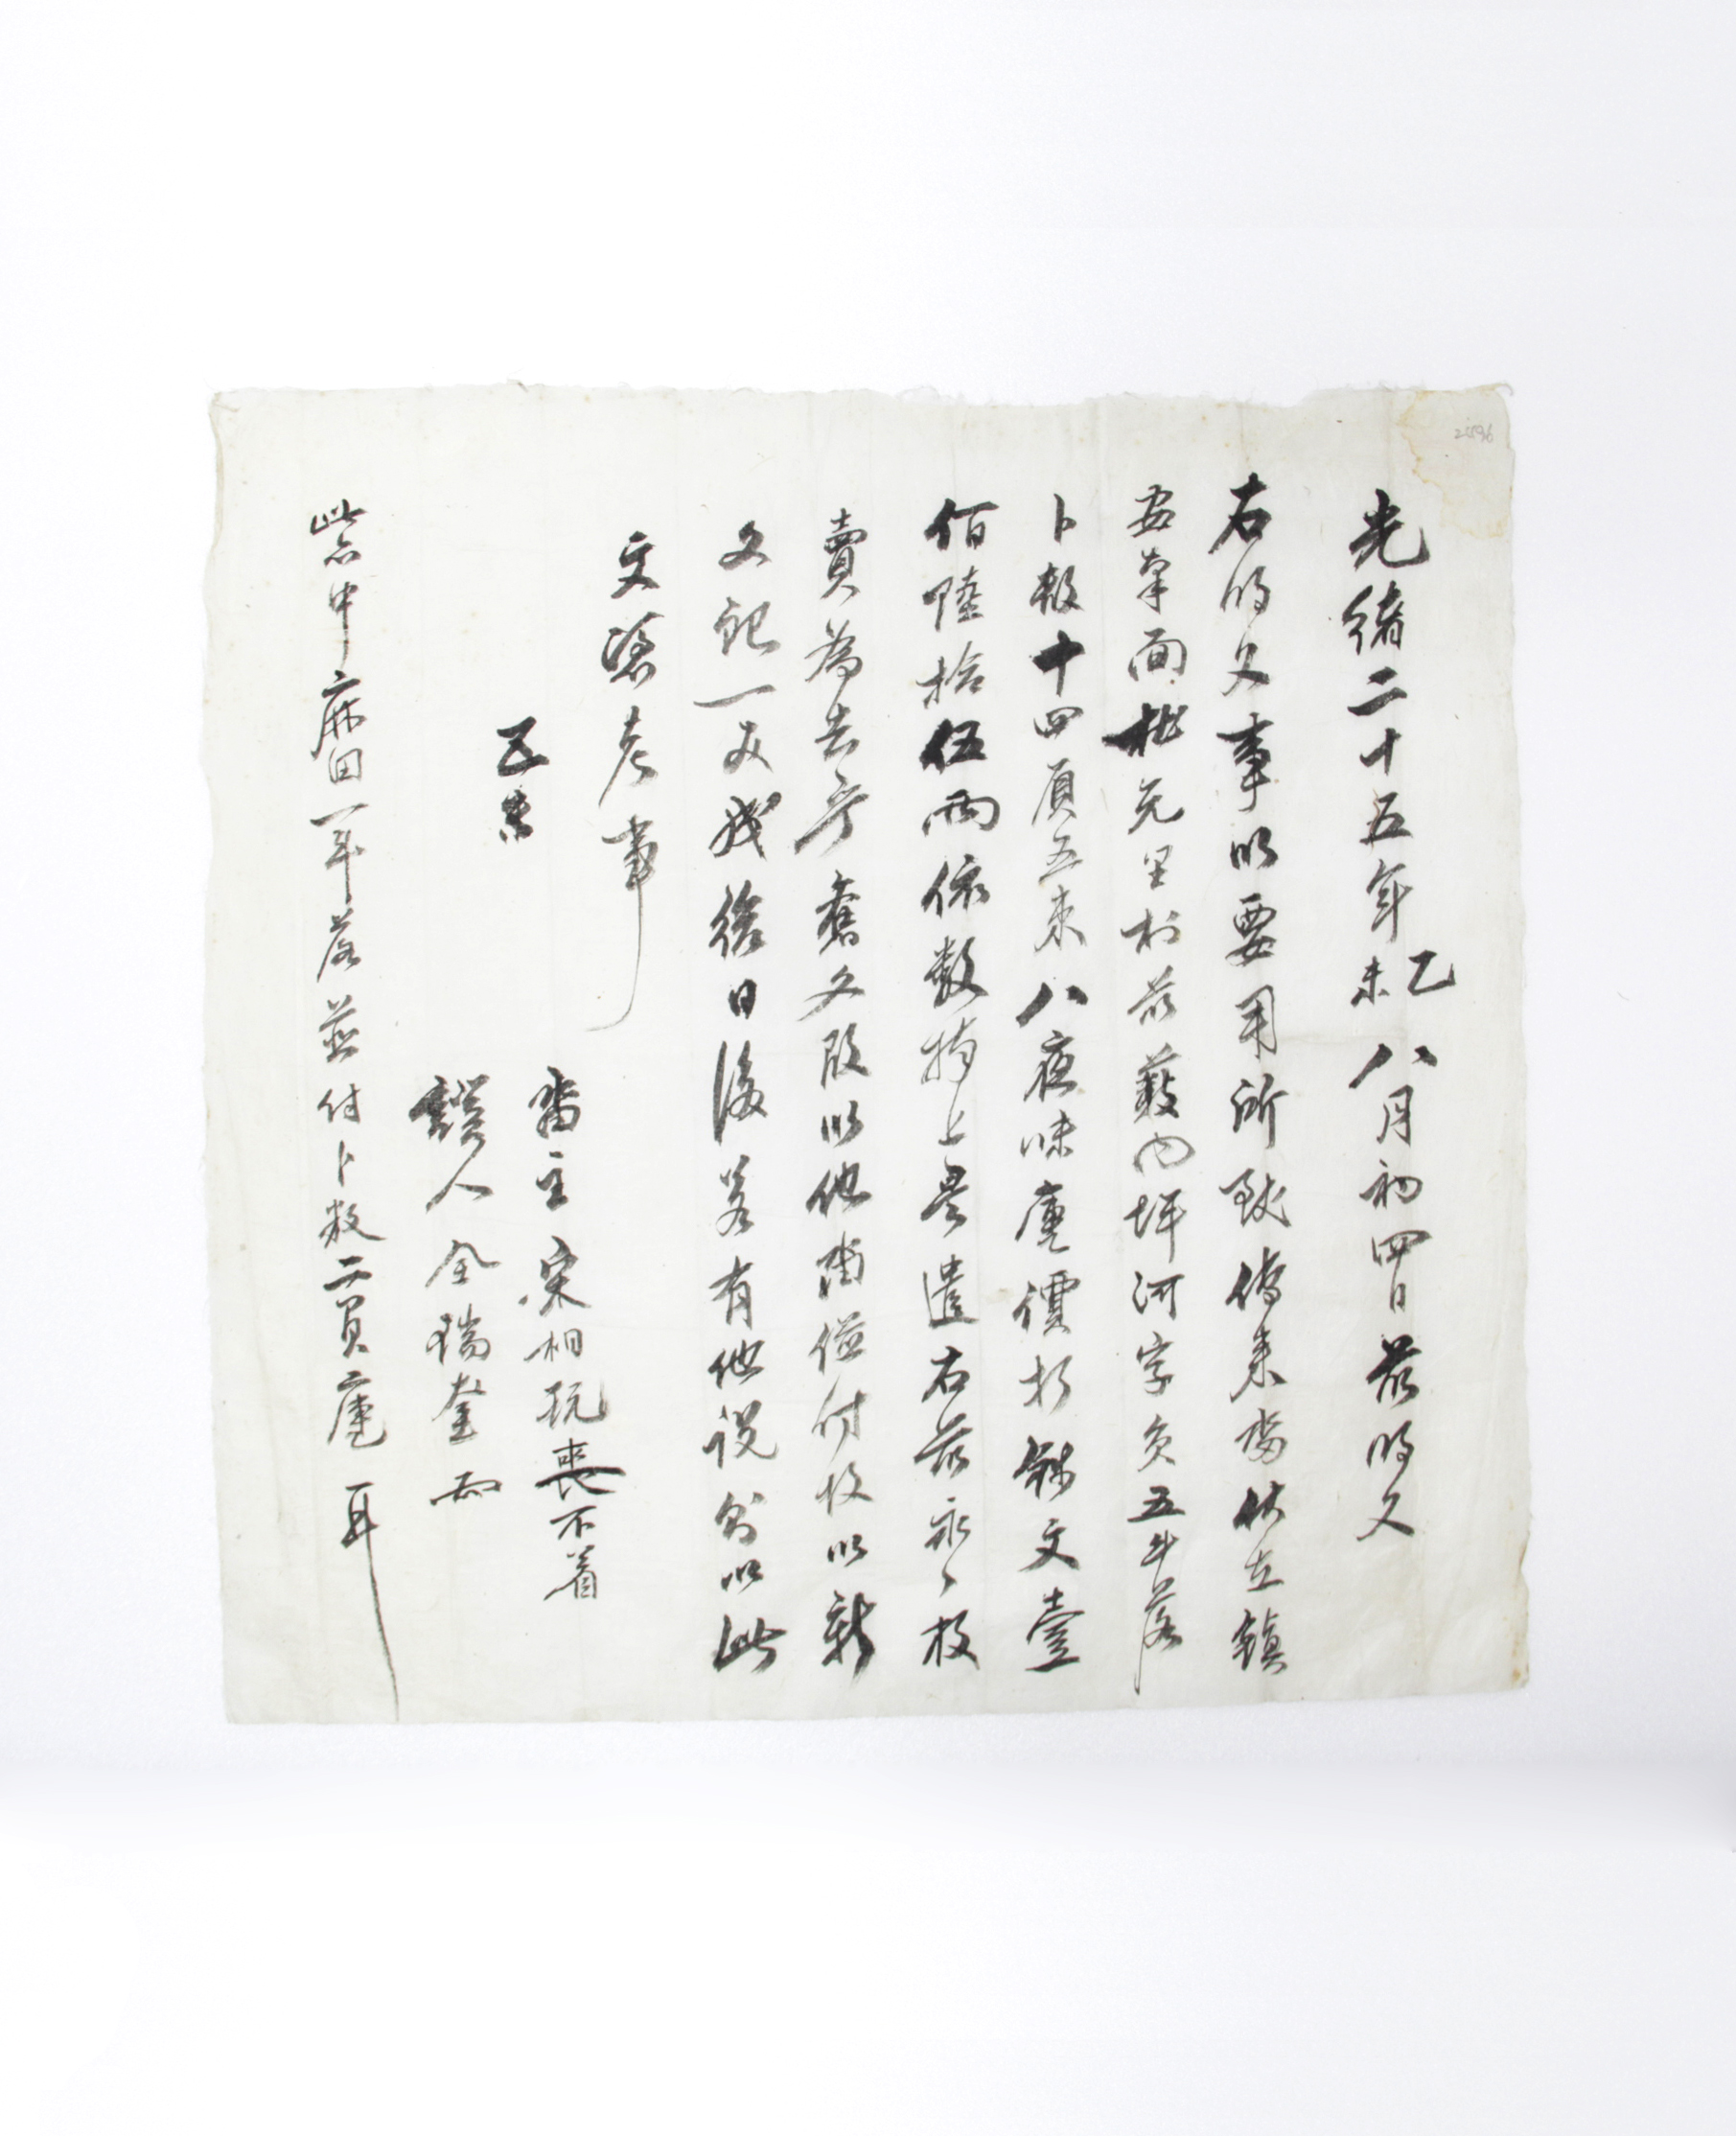 2596
光緒二十五年乙未八月初四日前明文
右明文事以要用所致傳來畓伏在鎭
安南面 兄里村前 內坪河字 五斗落
卜數十四負五束八夜味庫價折錢文壹
佰陸拾伍兩依數捧上是遣右前永〻放
賣爲去乎舊文段以他 並付故以新
文記一丈成給日後若有他說則以此
文 考事
畓主 宋相玩 喪不着
證人 全瑞奎
此亦中麻田一斗落並付卜數二負庫耳